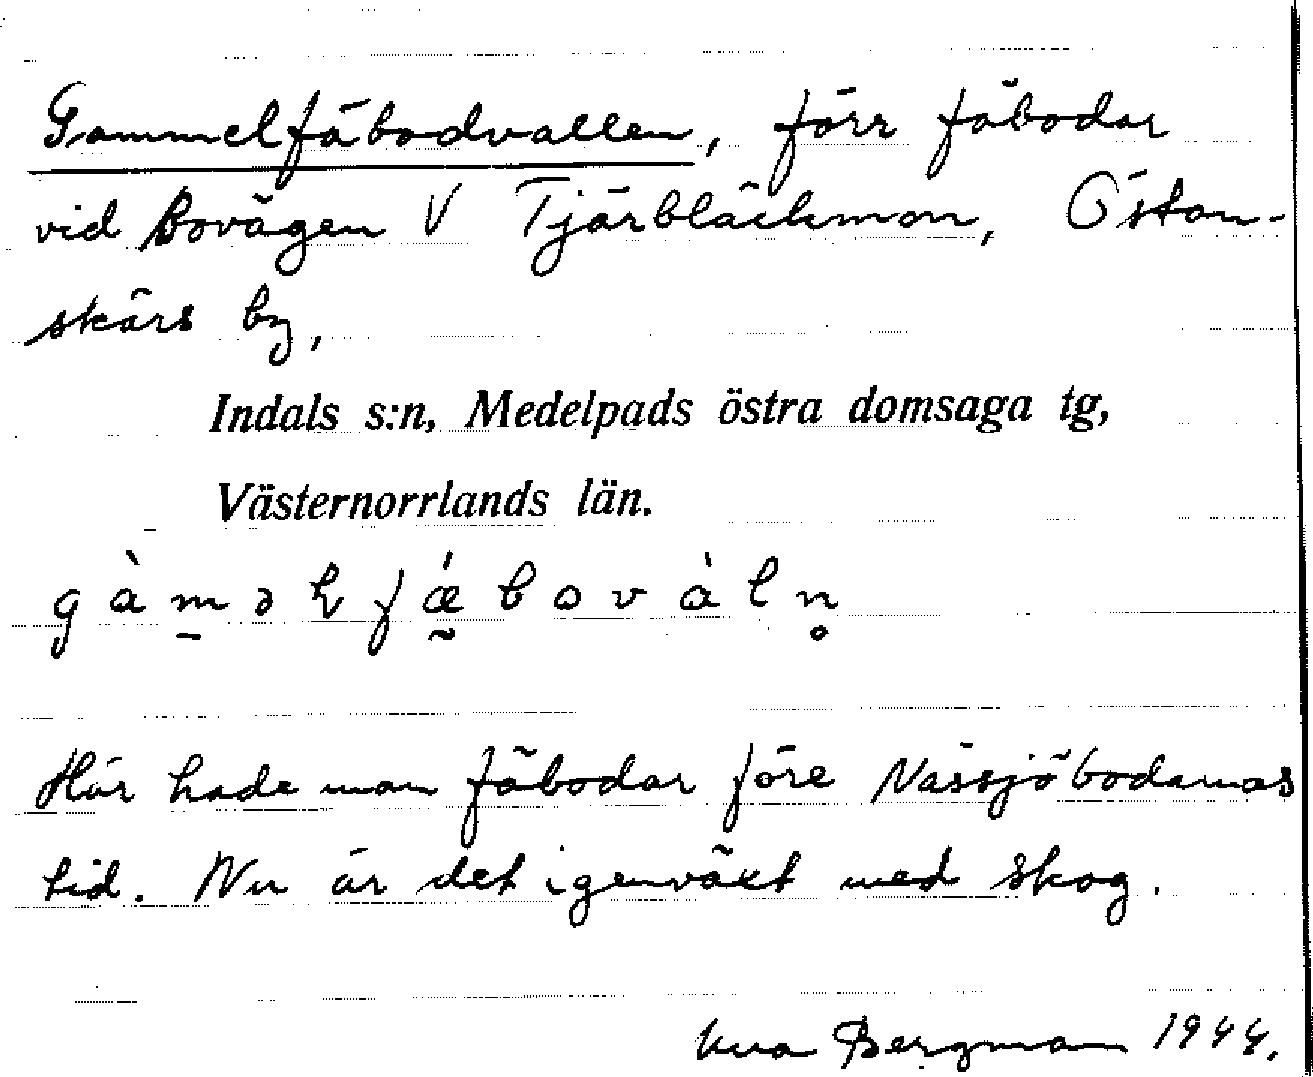 Gammelfäbodvallen, förr fäbodar
vid Bovägen V Tjärbläckmon, Östan-
skärs by,
Indals s:n, Medelpads östra domsaga tg,
Västernorrlands län.
Här hade man fäbodar före Nässjöbodarnas
tid. Nu är det igenväxt med skog.
Bergman 1944.